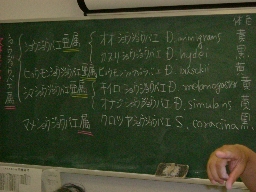 ショウジョウバエ属
体色
ショウジョウバエ亜属 オオショウジョウバエ D. immigrans 黄
カスリショウジョウバエ D. hydei 黒
ヒョウモンショウジョウバエ亜属 ヒョウモンショウジョウバエ D. busckii 黄
シマショウジョウバエ亜属 キイロショウジョウバエ D. melanogaster 黄
オナジショウジョウバエ D. simulans 黄
マメショウジョウバエ属 クロツヤショウジョウバエ S. coracina 黒